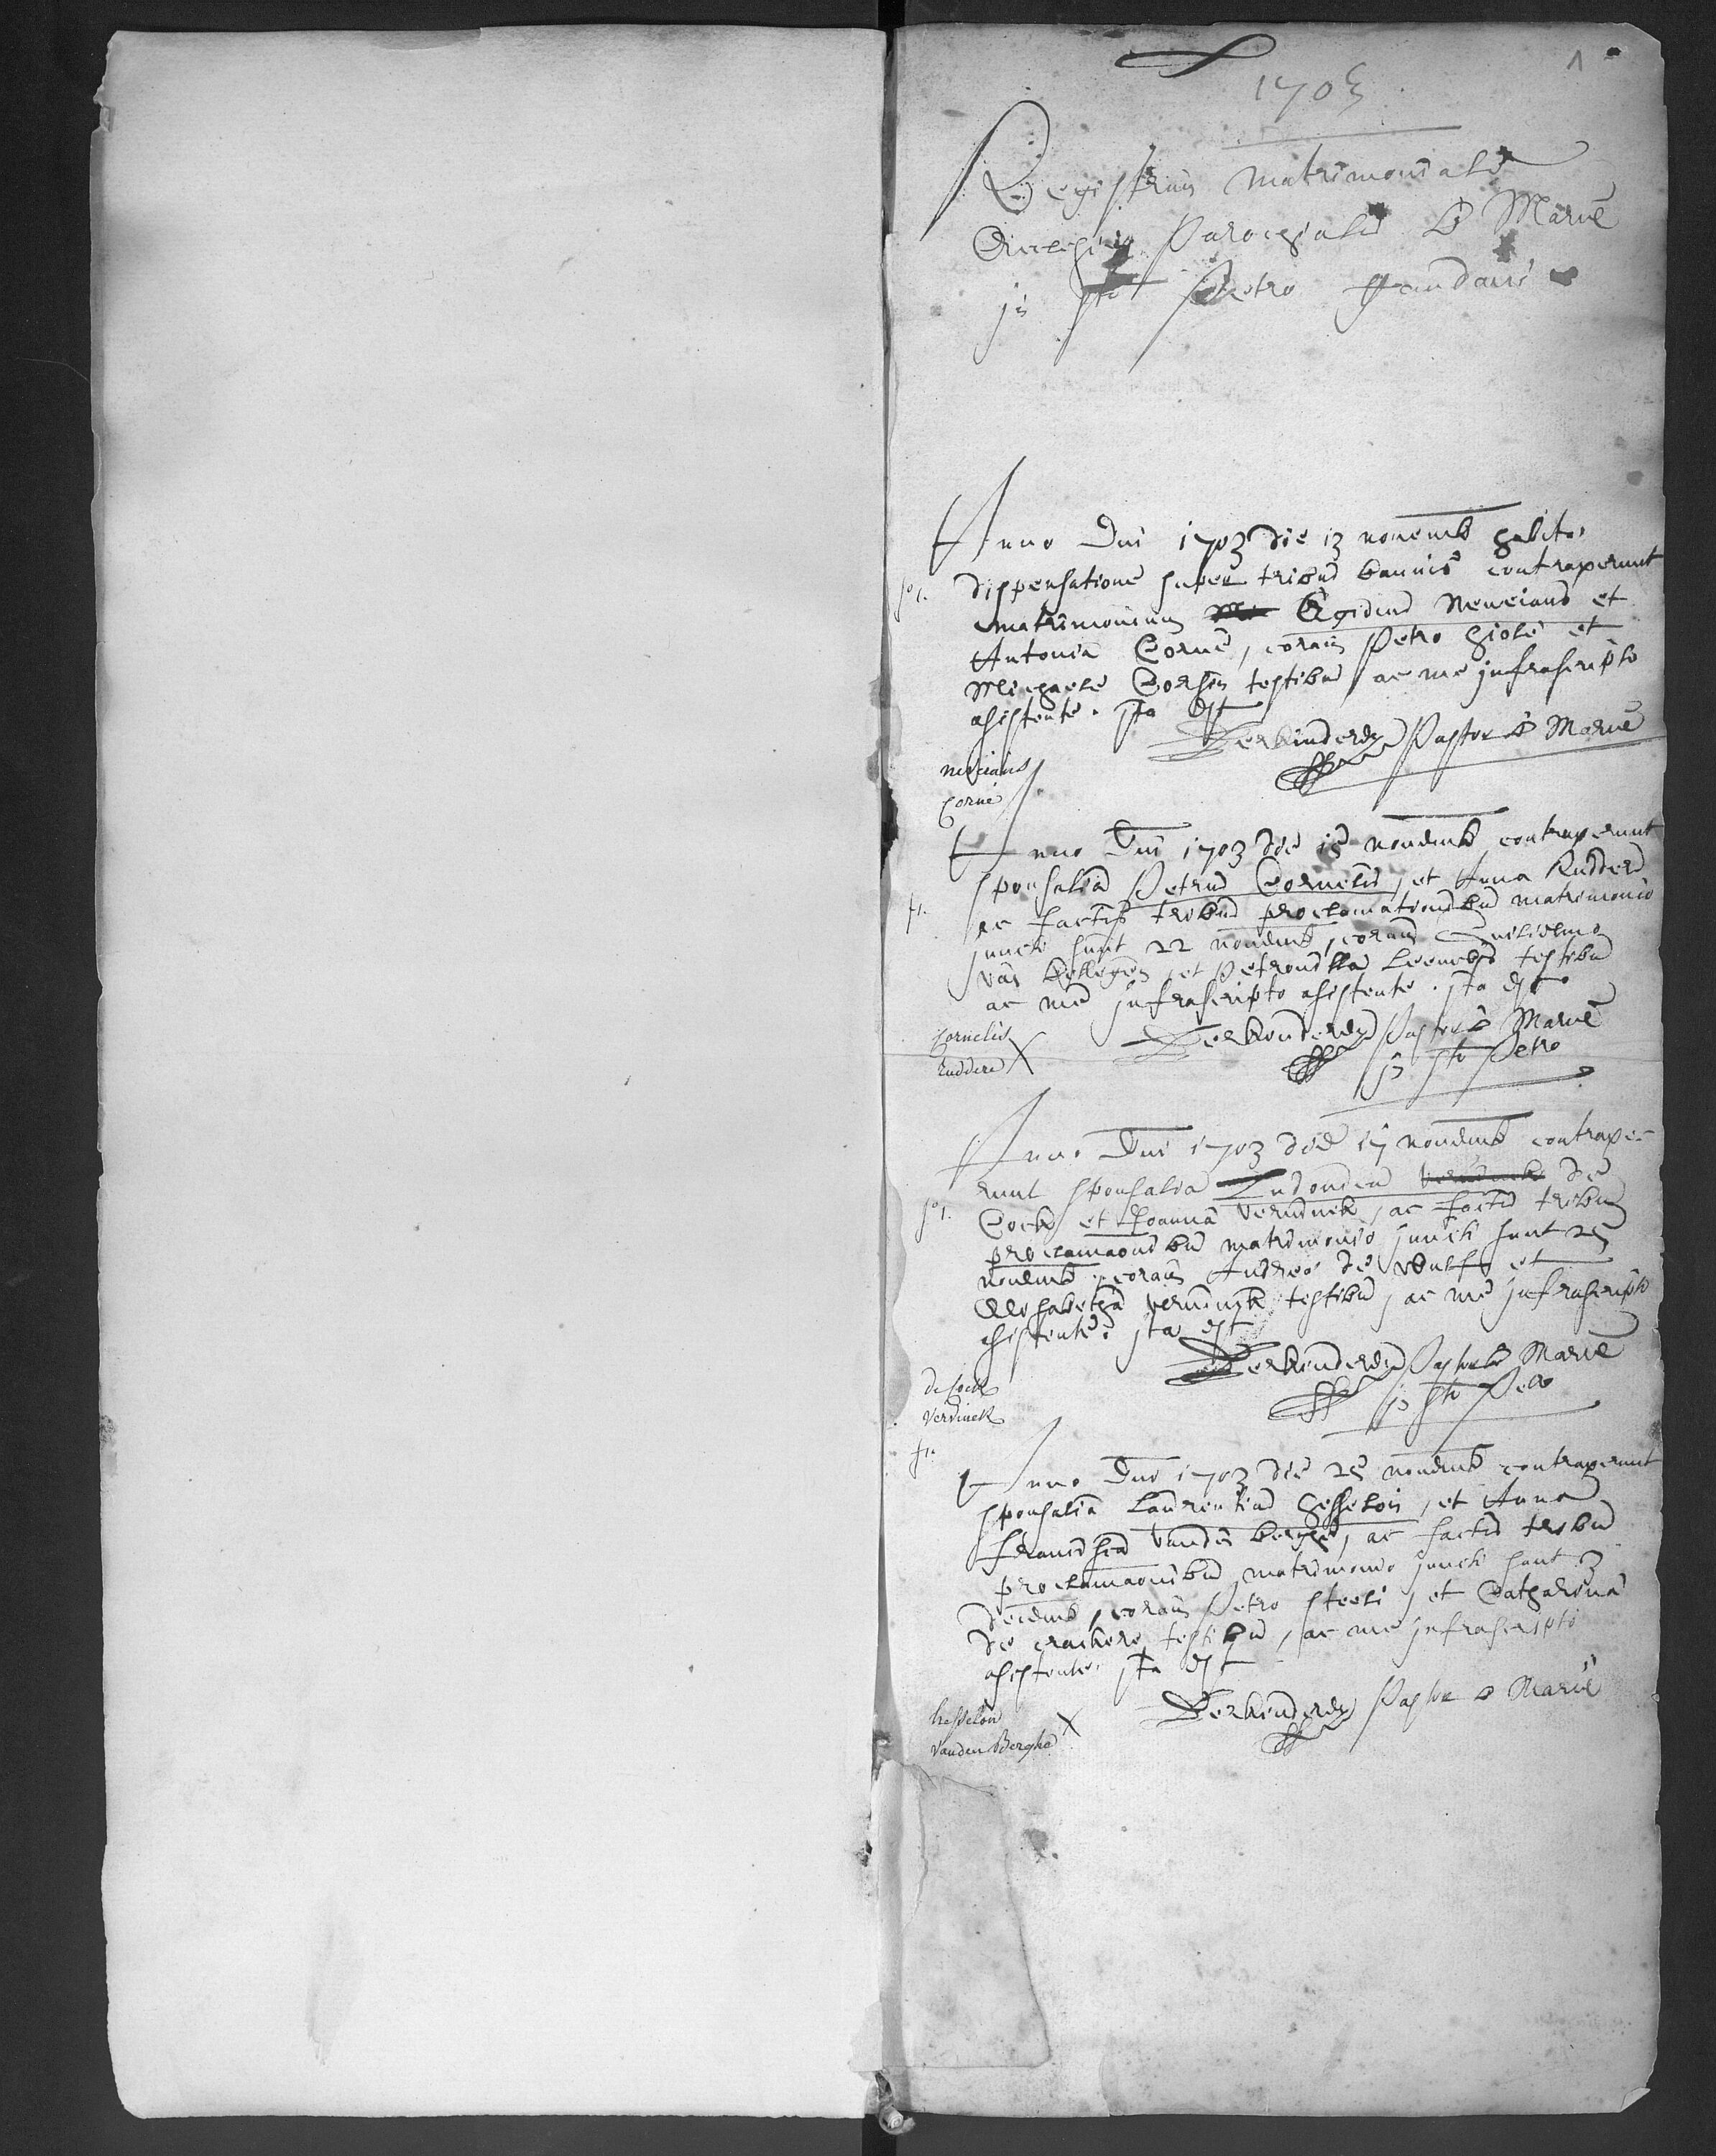 1
1703
Registrum Matrimoniale
Ecclesiæ Parochialis B Mariæ
in sto Petro Gandavi
Anno Dni 1703 die 13 novemb habita
fo 1. dispensatione super tribus bannis contraxerunt
matrimonium Egidius Neveians et
Antonia Corné, coram Petro
Michaele testibus ac me infrascripto
asistente. ita est
Derkinderen Pastor B Mariæ
neveians
Corné
Anno Dni 1703 die 15 novemb contraxerunt
sponsalia Petrus Cornelis, et Anna Ruddere
f 1. ac factis tribus proclamationibus matrimonio
juncti sunt 22 novemb, coram Guilielmo
van et Petronilla testibus
ac me infrascripto asistente. ita est
Derkinderen Pastor B Mariæ
in sto Petro
Cornelis
Ruddere
Anno Dni 1703 die 17 novemb contraxe-
runt sponsalia de
fo 1. Cock et Joanna Verdinck, ac factis tribus
proclamaonibus matrimonio juncti sunt 25
novemb, coram Andrea de Wulf et
Elisabetha testibus, ac me infrascripto
asistente. ita est
Derkinderen Pastor B Mariæ
in sto Petro
de Cock
Verdinck
f 1.
Anno Dni 1703 die 25 novemb contraxerunt
sponsalia Laurentius hesselon, et Anna
Francisca vanden berghe, ac factis tribus
proclamaonibus matrimonio juncti sunt 3
decemb, coram Petro Steeli, et Catharina
de testibus, ac me infrascripto
asistente. ita est
Derkinderen Pastor B Mariæ
hesselon
vanden Berghe